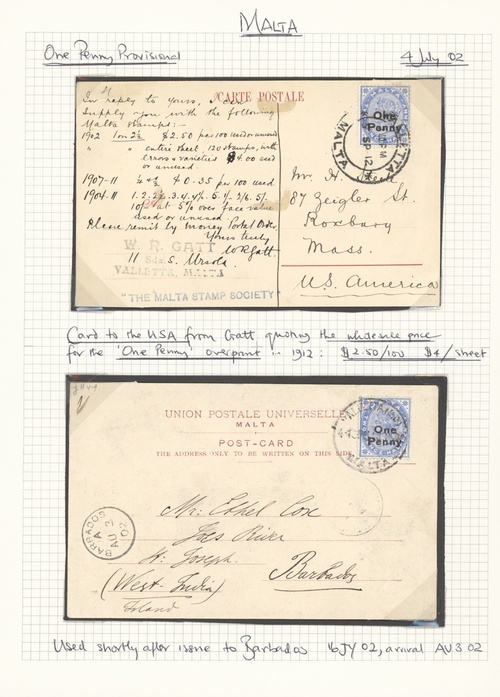 MALTA
One Penny Provisional
4 July 02
CARTE POSTALE
In reply to yours, I can
supply you with the following
Malta stamps:-
1902 1 on 2½ $2.50 per 100 used or unused
" " entire sheet, 120 stamps, with
errors & varieties $4.00 used
or unused
1907-11 ¼ & ½ $0.35 per 100 used
1904-11
10/- at 5% over face value
used or unused
Please remit by money Postal Order
Yours truly
W. R. Gatt
W. R. GATT
11 Sda S. Ursola
VALLETTA, MALTA
"THE MALTA STAMP SOCIETY"
One
Penny
MALTA
SP 12
Mr. H.
87 Zeigler St.
Roxbury
Mass.
U.S. America
Card to the USA from Gatt quoting the wholesale price
for the 'One Penny' overprint in 1912: $2.50/100 $4/sheet
UNION POSTALE UNIVERSELLE
MALTA
POST-CARD
THE ADDRESS ONLY TO BE WRITTEN ON THIS SIDE
One
Penny
MALTA
BARBADOS
A
AU 3
02
Mr. Ethel Cox
Joes River
St. Joseph.
Barbados
(West India)
Island
Used shortly after issue to Barbados 16 JY 02, arrival AU 3 02